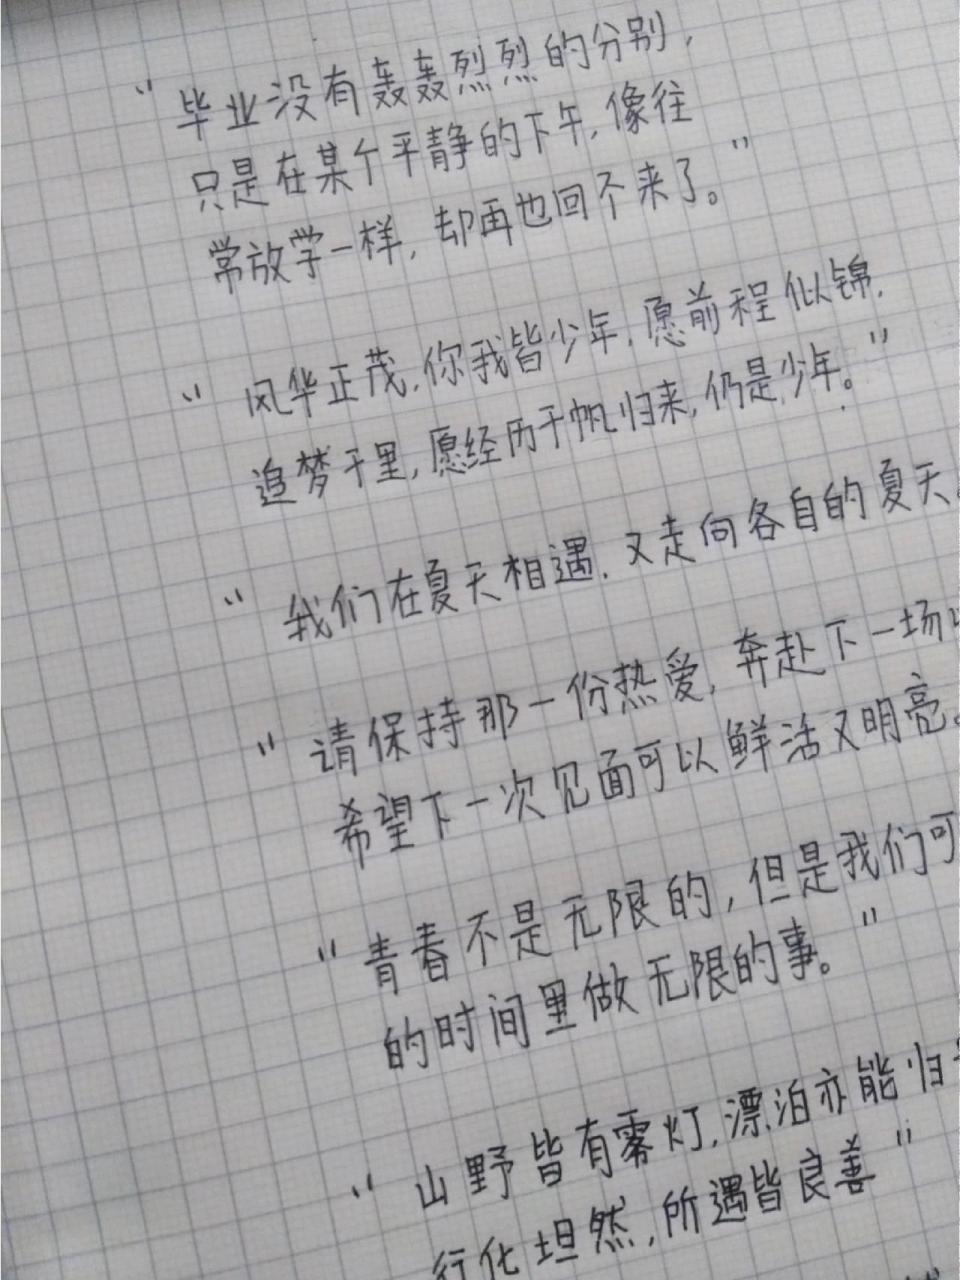 “毕业没有轰轰烈烈的分别，
只是在某个平静的下午，像往
常放学一样，却再也回不来了。”
“风华正茂，你我皆少年，愿前程似锦，
追梦千里，愿经历千帆归来，仍是少年。”
“我们在夏天相遇，又走向各自的夏天。
“请保持那一份热爱，奔赴下一场
希望下一次见面可以鲜活又明亮。
“青春不是无限的，但是我们可
的时间里做无限的事。”
“山野皆有雾灯，漂泊亦能归
行化坦然，所遇皆良善”